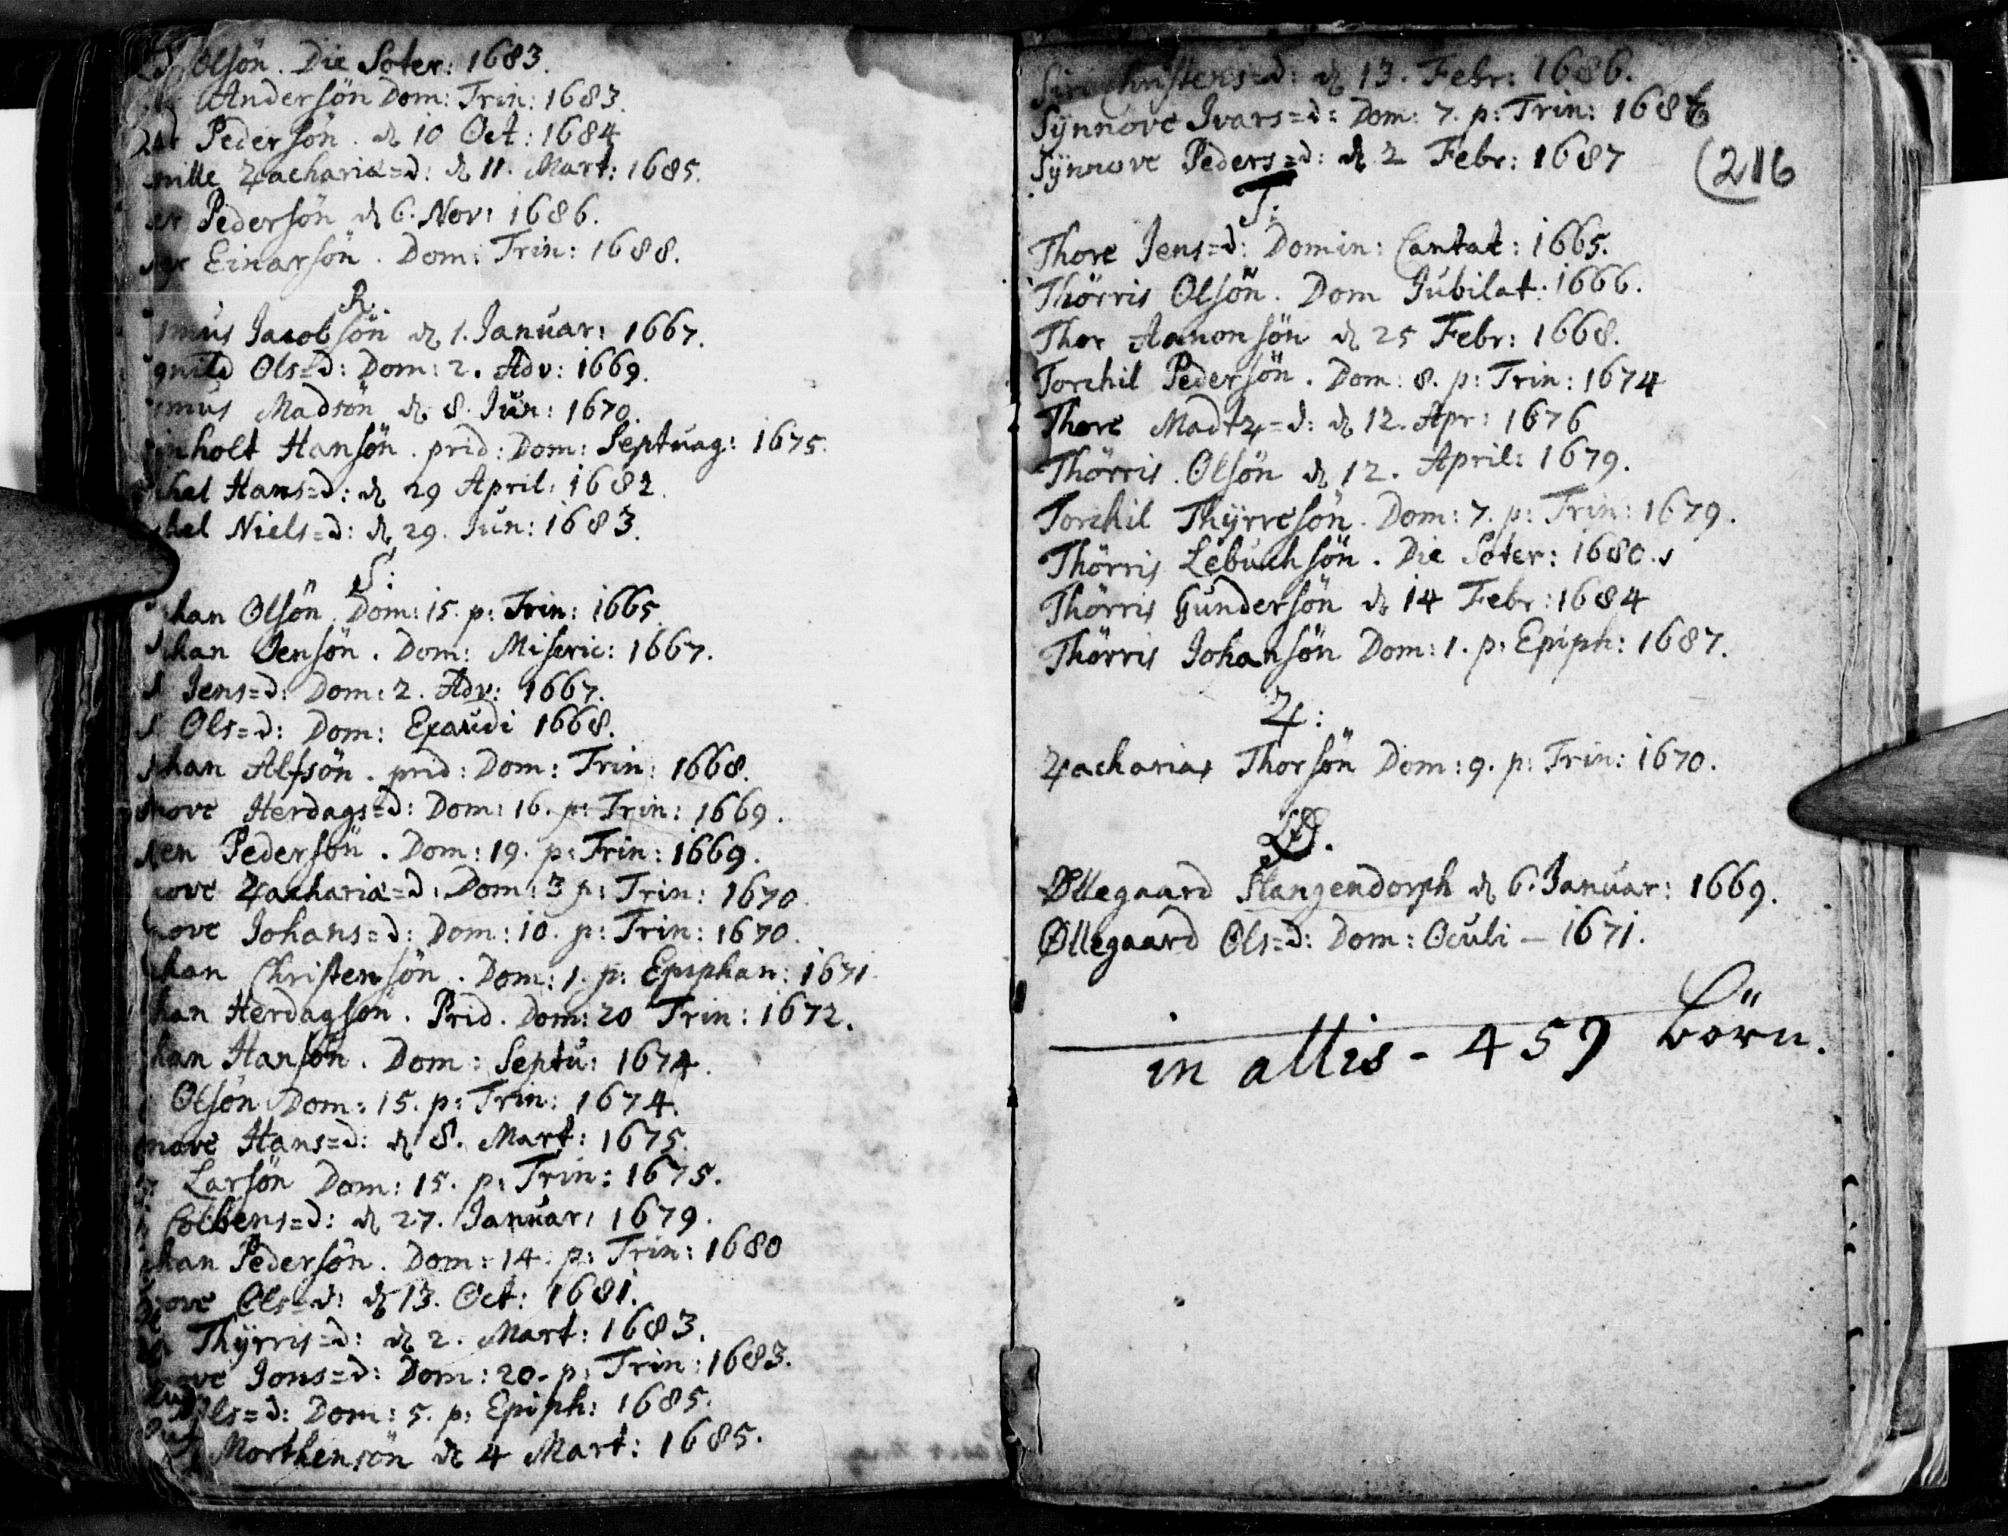 Olsön. Die Soter: 1683.
Andersön Dom: Trin: 1683.
Pedersön. d. 10 Oct: 1684
nille Zachariæ=d: d. 11. Mart: 1685.
er Pedersön d. 6. Nov: 1686.
Einarsön. Dom: Trin: 1688.
R:
smus Jacobsön d. 1. Januar: 1667.
gnild Ols=d: Dom: 2. Adv: 1669.
smus Madsön d. 8. Jun: 1670.
inholt Hansön. prid: Dom: Septuag: 1675.
chel Hans=d: d. 29 April: 1682.
chel Niels=d: d. 29. Jun: 1683.
S:
chan Olsön. Dom: 15. p: Trin: 1665.
chan Jensön. Dom: Miseric: 1667.
Jens=d: Dom: 2. Adv: 1667.
Ols=d: Dom: Exaudi 1668.
chan Alfsön. prid: Dom: Trin: 1668.
nove Herdags=d: Dom: 16. p: Trin: 1669.
en Pedersön. Dom: 19. p: Trin: 1669.
nove Zachariæ=d: Dom: 3 p: Trin: 1670.
nove Johans=d: Dom: 10. p: Trin: 1670.
chan Christensön. Dom: 1. p: Epiphan: 1671.
han Herdagsön. Prid. Dom: 20 Trin: 1672.
han Hansön. Dom: Septu: 1674.
Olsön Dom: 15. p: Trin: 1674.
nove Hans=d: d. 8. Mart: 1675.
Larsön Dom: 15. p: Trin: 1675.
Colbens=d: d. 27. Januar: 1679.
chan Pedersön. Dom: 14. p: Trin: 1680
nove Ols=d: d. 13. Oct: 1681.
Thÿrris=d: d. 2. Mart: 1683.
nove Jons=d: Dom: 20. p: Trin: 1683.
Ols=d: Dom: 5. p: Epiph: 1685.
Morthensön d. 4 Mart: 1685.
Siri Christens=d: d. 13. Febr: 1686.
Sÿnnove Ivars=d: Dom: 7. p: Trin: 1686
Sÿnnove Peders=d: d. 2 Febr: 1687
(216
T:
Thore Jens=d: Domin: Cantat: 1665.
Thörris Olsön. Dom Jubilat: 1666.
Thor Aanonsön d. 25 Febr: 1668.
Torchil Pedersön. Dom: 8. p: Trin: 1674
Thore Madtz=d: d. 12. Apr: 1676
Thörris Olsön d. 12. April: 1679.
Torchil Thÿrresön. Dom: 7. p: Trin: 1679.
Thörris Lebuchsön. Die Soter: 1680.
Thörris Gundersön d. 14 Febr: 1684
Thörris Johansön Dom: 1. p: Epiph: 1687.
Z:
Zacharias Thorsön Dom: 9. p: Trin: 1670.
Ø.
Øllegaard Stangendorph d. 6. Januar: 1669.
Øllegaard Ols=d: Dom: Oculi — 1671.
in altis - 459 börn.